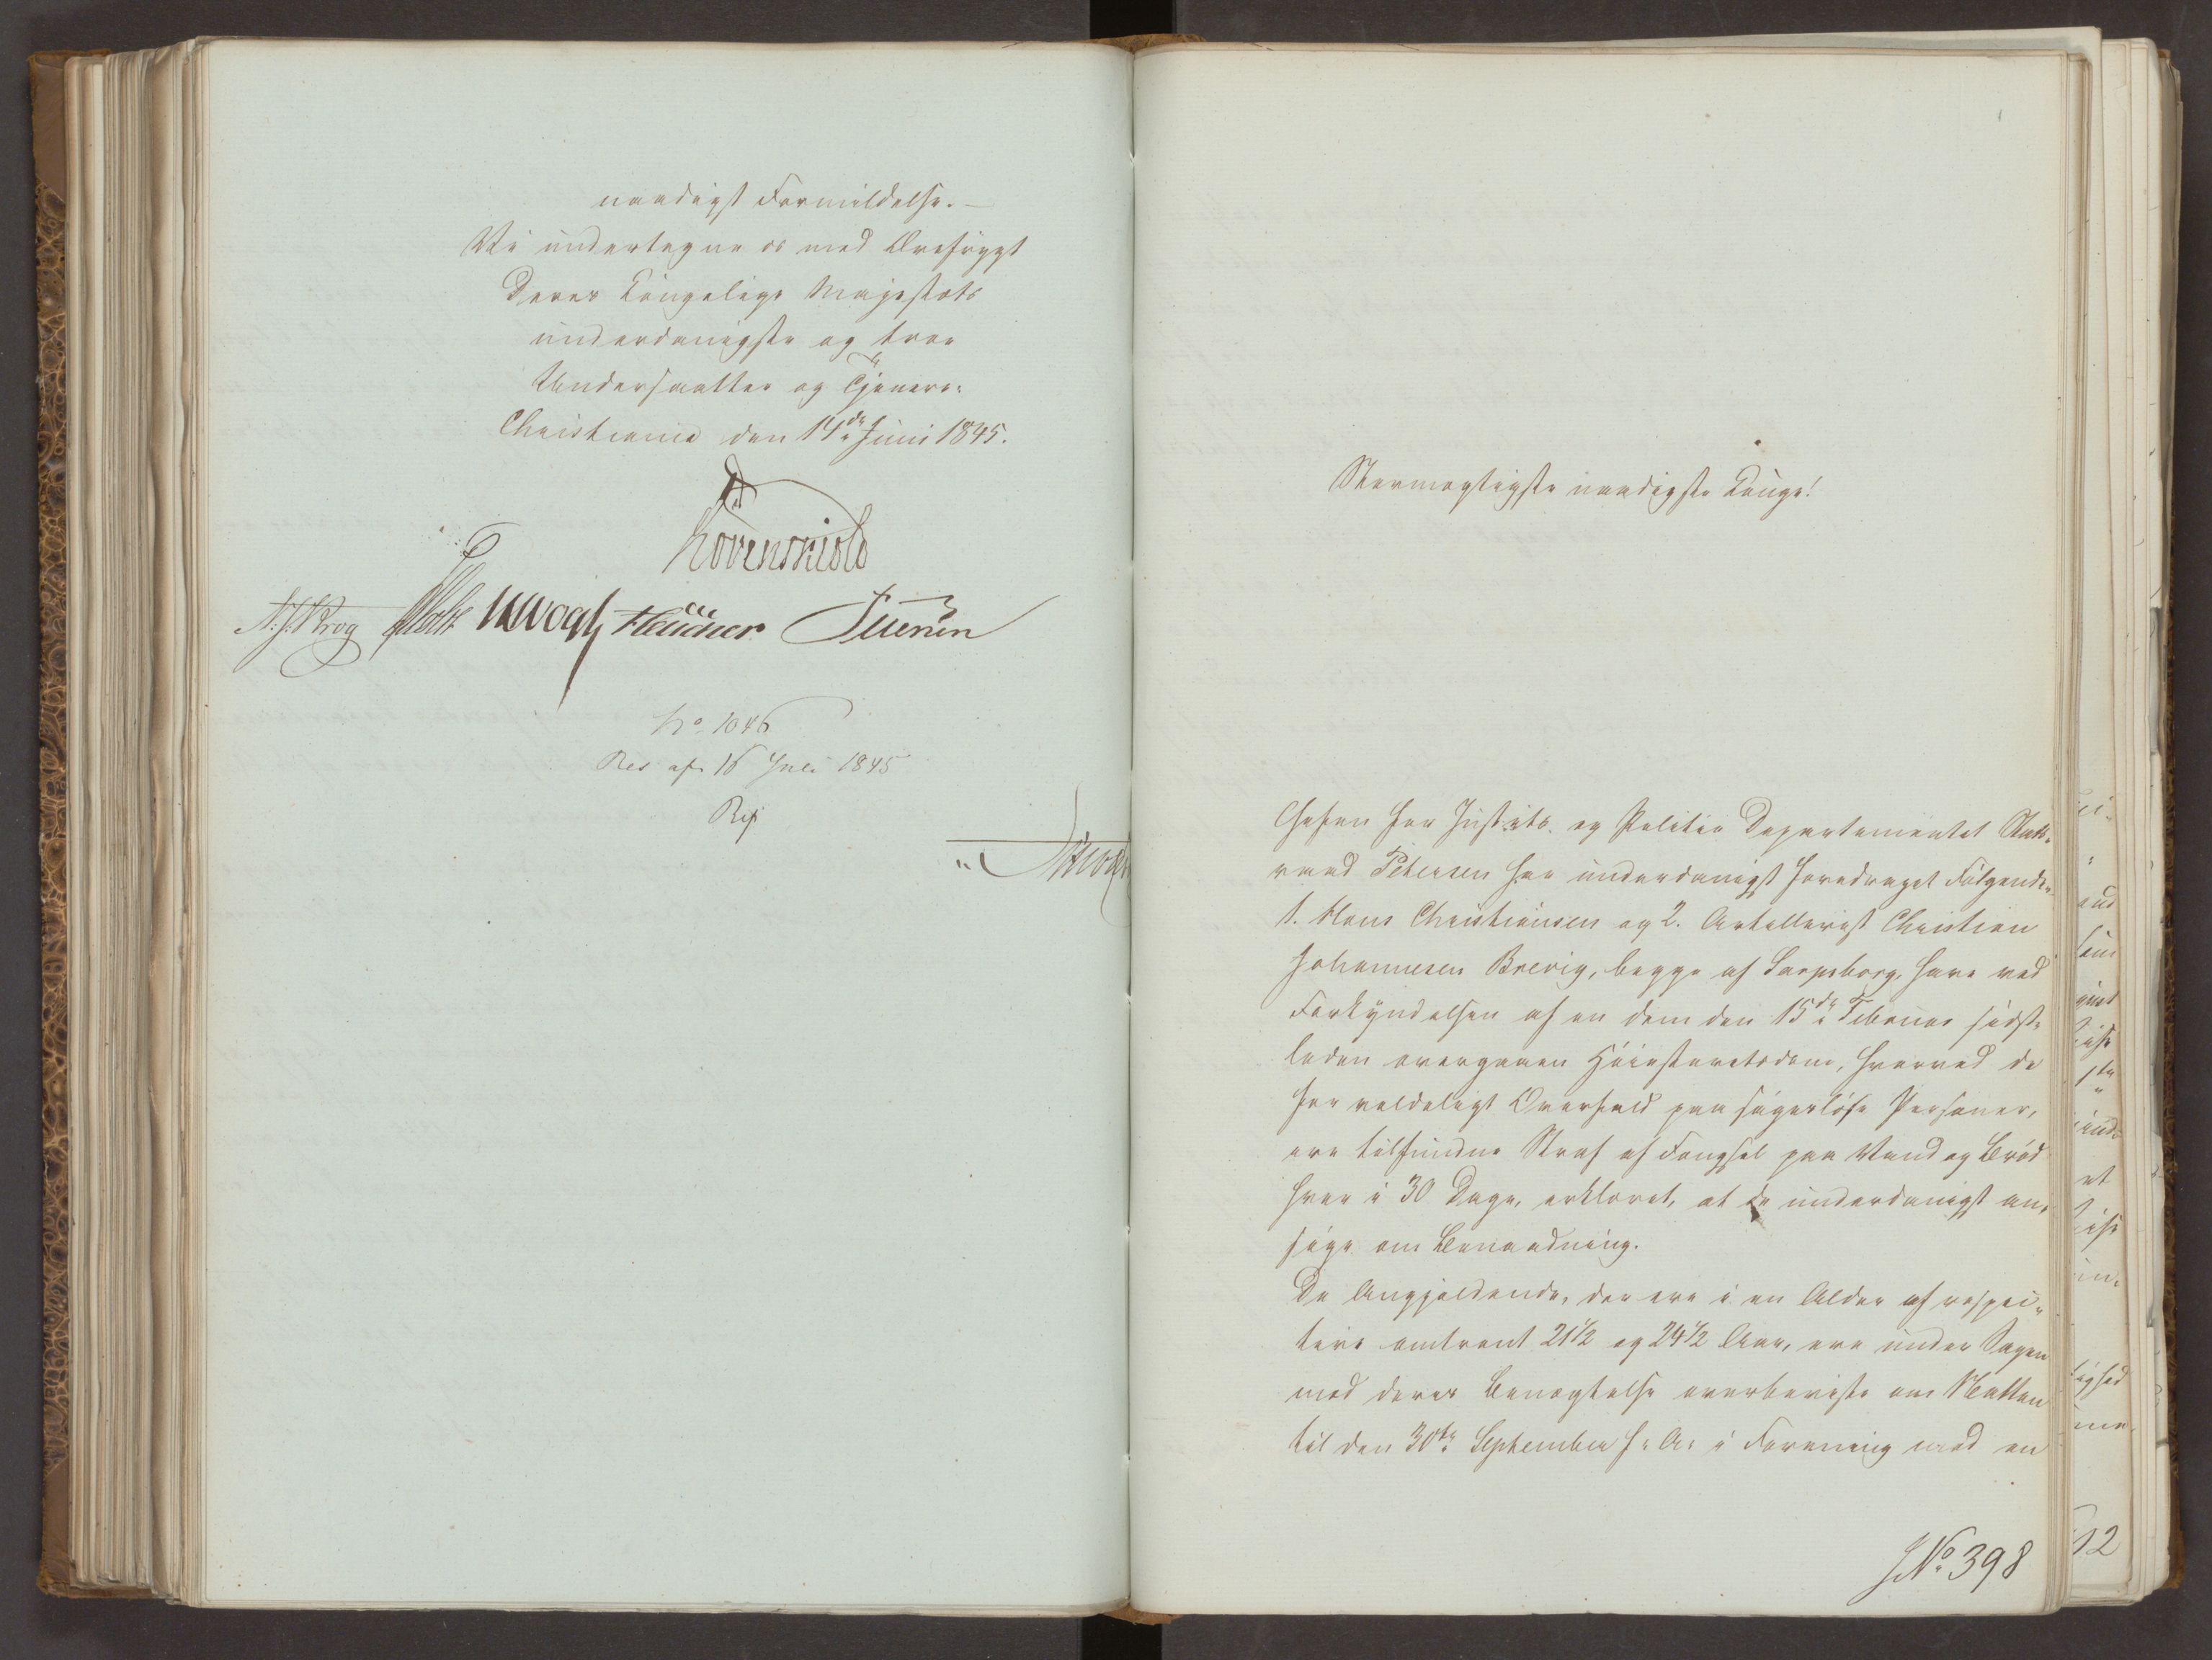 naadigst Formildelse. —
Vi undertegne os med Ærefrygt
Deres Kongelige Majestæts
underdanigste og troe
Undersaatter og Tjenere.
Christiania den 14de Juni 1845.
Løvenskiold
N. J. Krog Vogt Fleischer
No 1046
Res af 16 Juli 1845
Stormægtigste naadigste Konge!
Chefen for Justits- og Politie Departementet Stats-
raad Petersen har underdanigst foredraget Følgende:
1. Hans Christiansen og 2. Artillerist Christian
Johannesen Brevig, begge af Sarpsborg, have ved
Forkyndelsen af en dem den 15de Februar sidst-
leden overgaaen Høiesteretsdom, hvorved de
for voldeligt Overfald paa sagesløse Personer,
ere tilfundne Straf af Fængsel paa Vand og Brød
hver i 30 Dage, erklæret, at de underdanigst an-
søge om Benaadning.
De Angjældende, der ere i en Alder af respec-
tive omtrent 21½ og 24½ Aar, ere under Sagen
mod deres Benægtelse overbeviste om Natten
til den 30te September f. A. i Forening med en
JNo 398